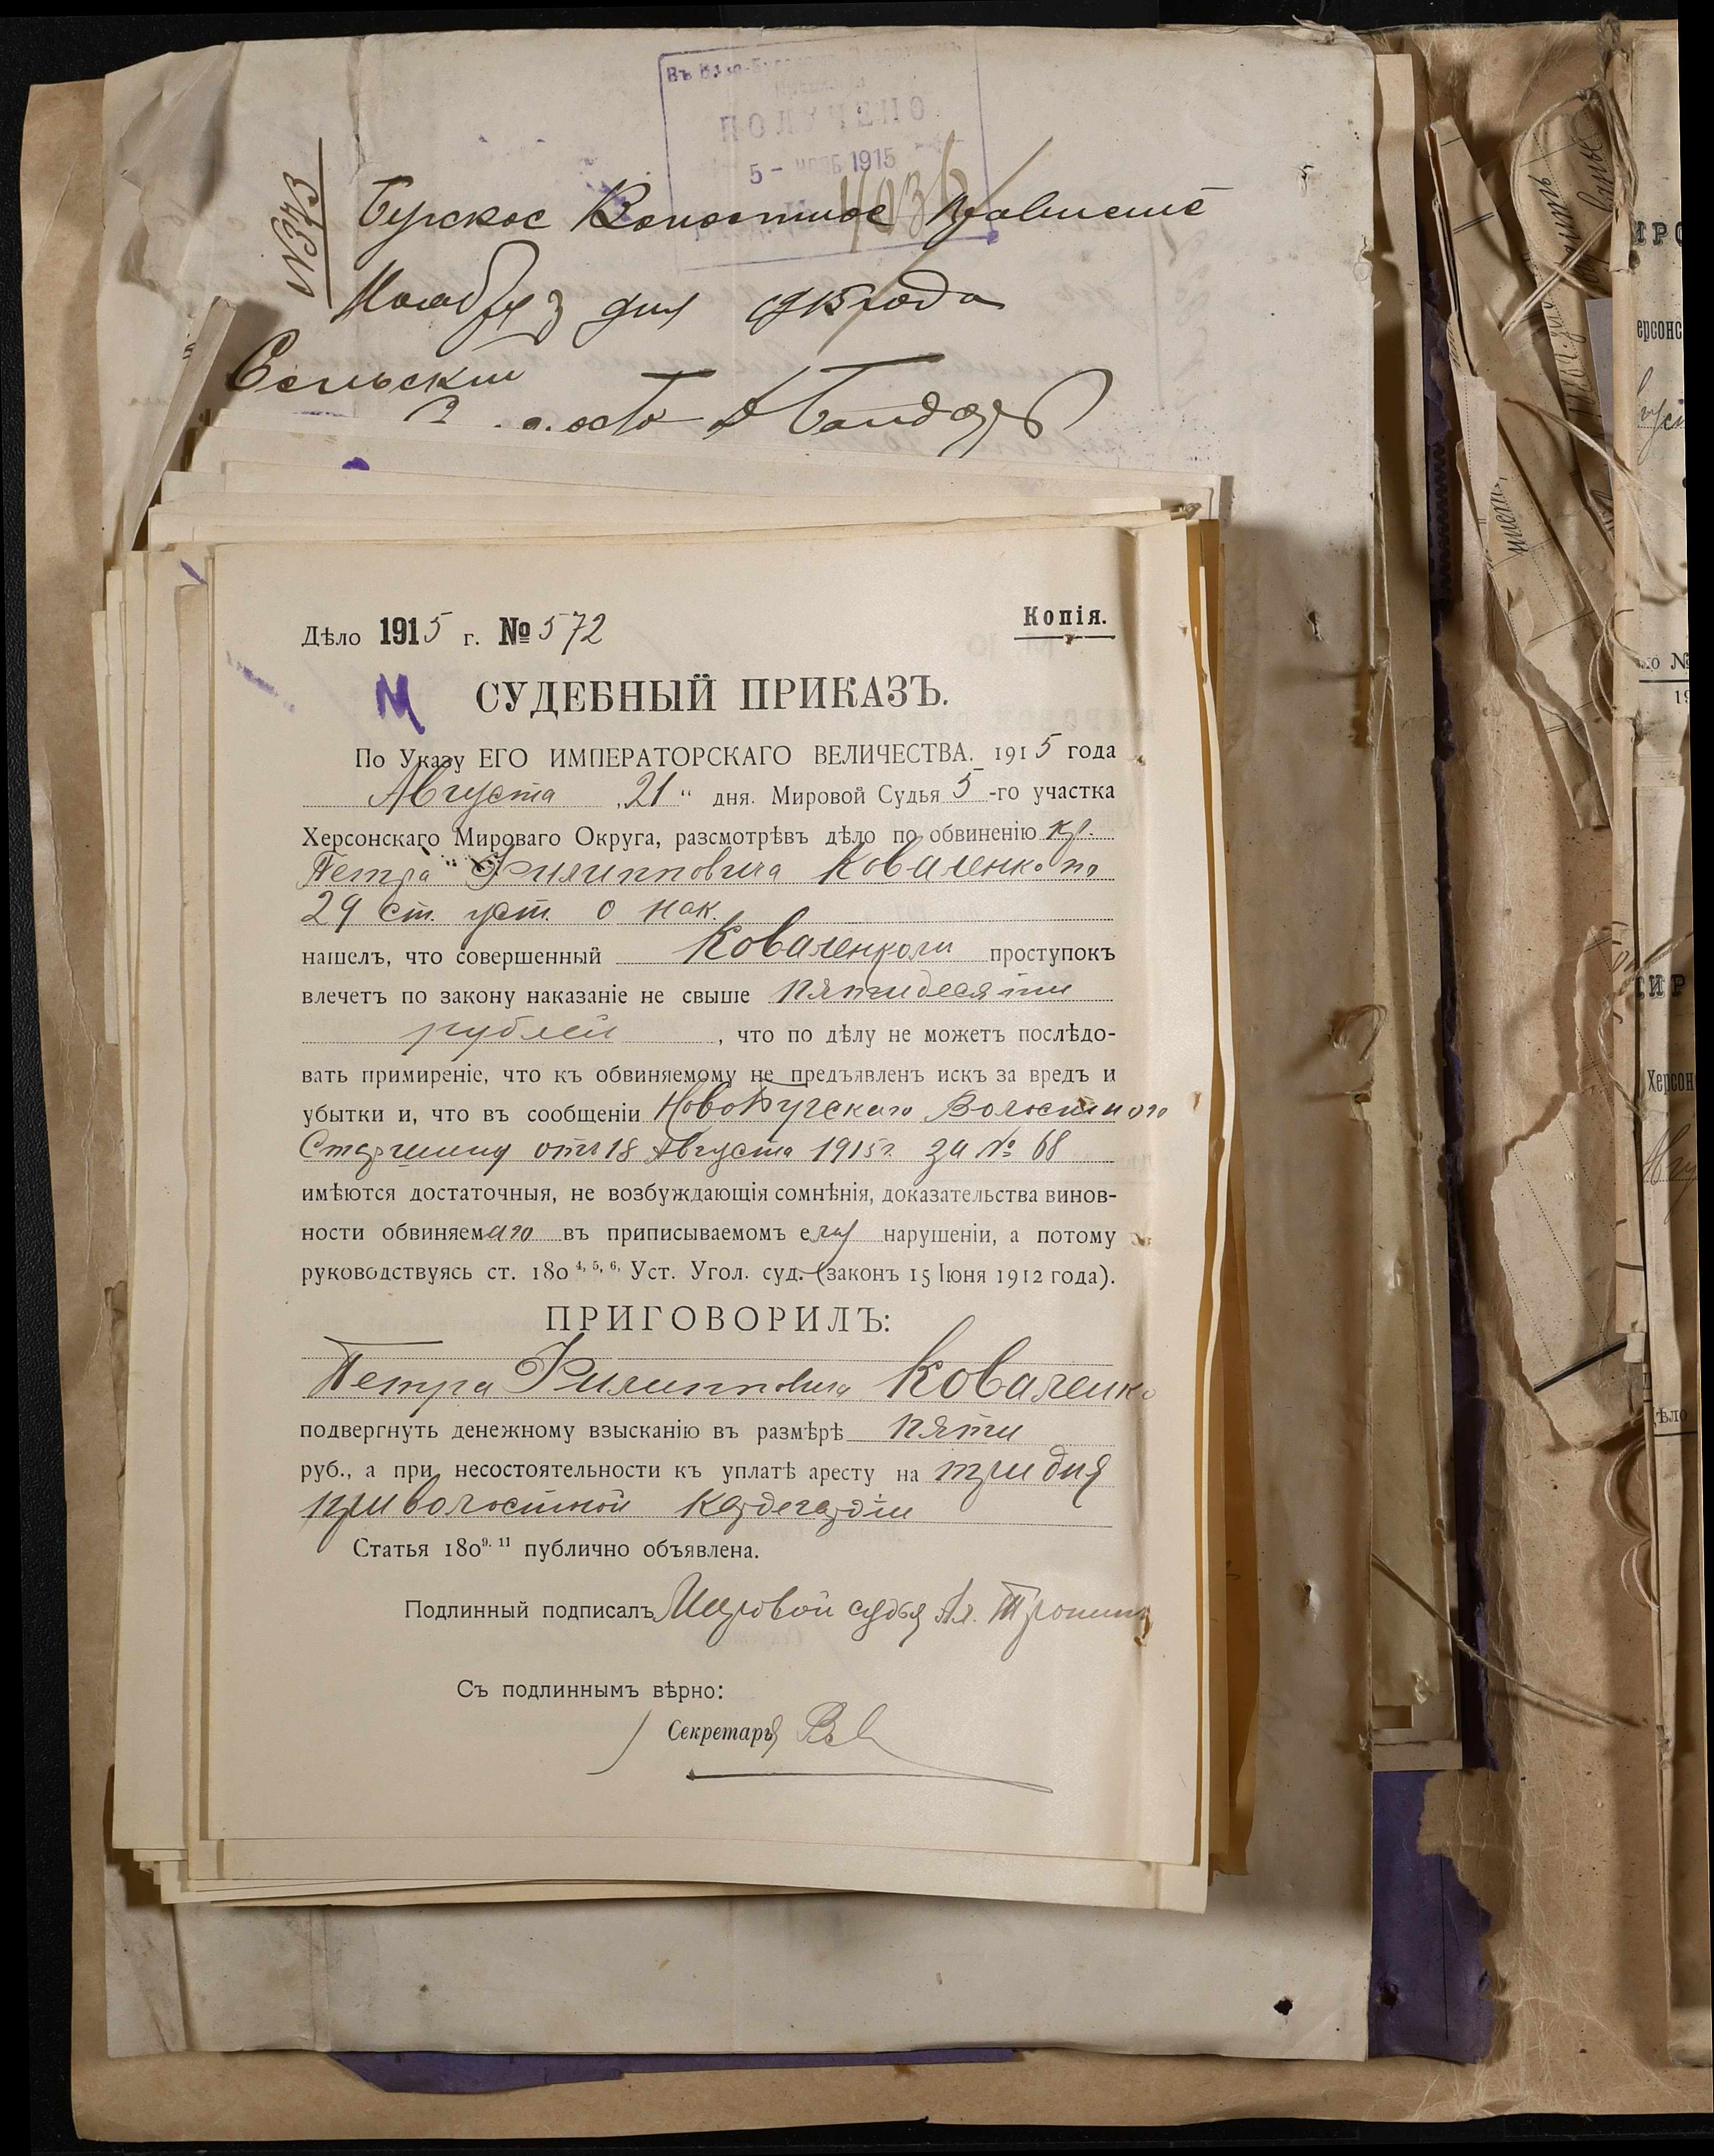 ПОЛУЧЕНО
5 - НОЯБ 1915
№373
Бугское Волостное Правление
Ноября 3 дня 1915 года
Сельский
Дѣло 1915 г. № 572
Копія.
М
СУДЕБНЫЙ ПРИКАЗЪ.
По Указу ЕГО ИМПЕРАТОРСКАГО ВЕЛИЧЕСТВА. 1915 года
Августа „21“ дня. Мировой Судья 5-го участка
Херсонскаго Мироваго Округа, разсмотрѣвъ дѣло по обвиненію кр.
Петра Филипповича Коваленко по
29 ст. уст. о нак.
нашелъ, что совершенный Коваленком проступокъ
влечетъ по закону наказаніе не свыше пятидесяти
рублей, что по дѣлу не можетъ послѣдо-
вать примиреніе, что къ обвиняемому не предъявленъ искъ за вредъ и
убытки и, что въ сообщеніи НовоБугскаго Волостного
Старшины отъ 18 Августа 1915 г. за № 68
имѣются достаточныя, не возбуждающія сомнѣнія, доказательства винов-
ности обвиняемаго въ приписываемомъ ему нарушеніи, а потому
руководствуясь ст. 180 4, 5, 6, Уст. Угол. суд. (законъ 15 Іюня 1912 года).
ПРИГОВОРИЛЪ:
Петра Филипповича Коваленко
подвергнуть денежному взысканію въ размѣрѣ пяти
руб., а при несостоятельности къ уплатѣ аресту на три дня
при волостной кардегардіи
Статья 180 9. 11 публично объявлена.
Подлинный подписалъ Мировой судья Ал. Тронин
Съ подлиннымъ вѣрно:
Секретарь